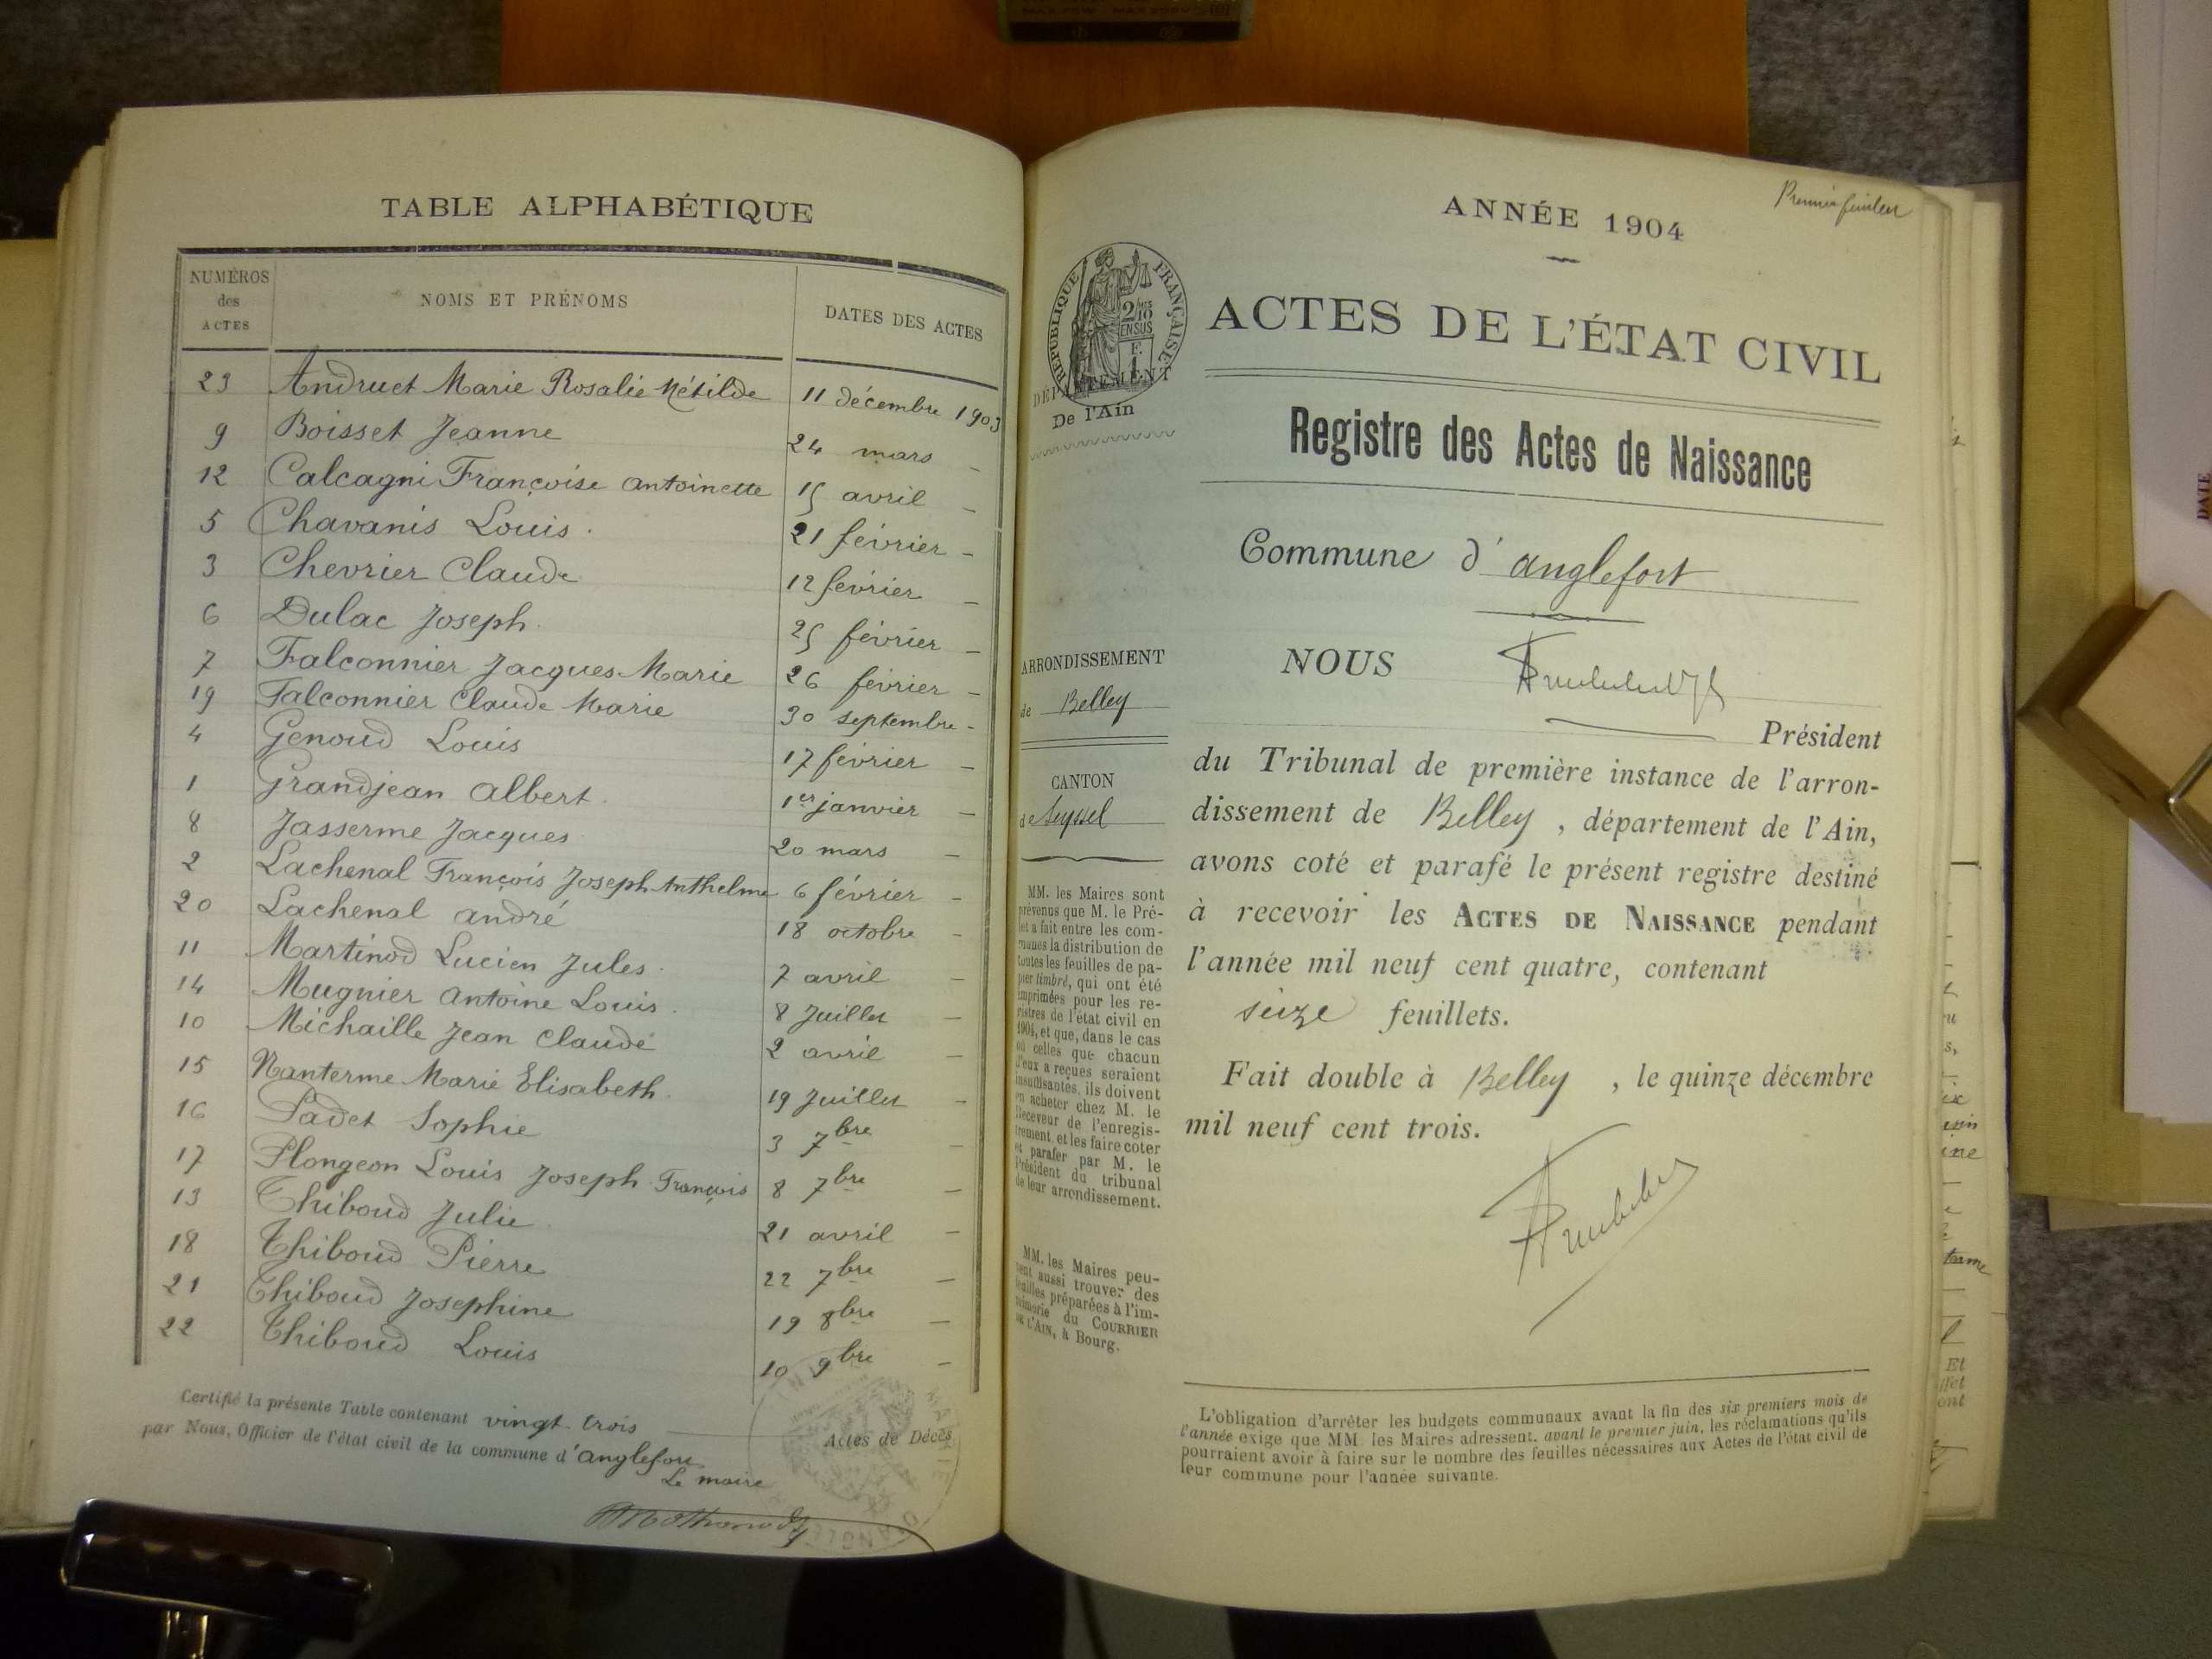 TABLE ALPHABÉTIQUE
NUMÉROS des ACTES NOMS ET PRÉNOMS DATES DES ACTES
23 Andruet Marie Rosalie Métilde 11 décembre 1903
9 Boisset Jeanne 24 mars -
12 Calcagni Françoise Antoinette 15 avril -
5 Chavanis Louis 21 février -
3 Chevrier Claude 12 février -
6 Dulac Joseph 25 février -
7 Falconnier Jacques Marie 26 février -
19 Falconnier Claude Marie 30 septembre -
4 Genoud Louis 17 février -
1 Grandjean Albert 1er janvier -
8 Jasserme Jacques 20 mars -
2 Lachenal François Joseph Anthelme 6 février -
20 Lachenal André 18 octobre -
11 Martinod Lucien Jules 7 avril -
14 Mugnier Antoine Louis 8 Juillet -
10 Michaille Jean Claude 2 avril -
15 Nanterme Marie Elisabeth 19 Juillet -
16 Padet Sophie 3 7bre -
17 Plongeon Louis Joseph François 8 7bre -
13 Thiboud Julie 21 avril -
18 Thiboud Pierre 22 7bre -
21 Thiboud Josephine 19 8bre -
22 Thiboud Louis 10 9bre -
Certifié la présente Table contenant vingt trois Actes de Décès
par Nous, Officier de l'état civil de la commune d'Anglefort
Le maire
Premier feuillet
ANNÉE 1904
RÉPUBLIQUE FRANÇAISE
2/10 EN SUS
F. 1.
DÉPARTEMENT
De l'Ain
ACTES DE L'ÉTAT CIVIL
Registre des Actes de Naissance
Commune d'Anglefort
ARRONDISSEMENT
de Belley
CANTON
de Seyssel
MM. les Maires sont
prévenus que M. le Pré-
fet a fait entre les com-
munes la distribution de
toutes les feuilles de pa-
pier timbré, qui ont été
imprimées pour les re-
gistres de l'état civil en
1904, et que, dans le cas
où celles que chacun
d'eux a reçues seraient
insuffisantes, ils doivent
en acheter chez M. le
Receveur de l'enregis-
trement, et les faire coter
et parafer par M. le
Président du tribunal
de leur arrondissement.
MM. les Maires peu-
vent aussi trouver des
feuilles préparées à l'im-
primerie du COURRIER
DE L'AIN, à Bourg.
NOUS
Président
du Tribunal de première instance de l'arron-
dissement de Belley, département de l'Ain,
avons coté et parafé le présent registre destiné
à recevoir les ACTES DE NAISSANCE pendant
l'année mil neuf cent quatre, contenant
seize feuillets.
Fait double à Belley, le quinze décembre
mil neuf cent trois.
L'obligation d'arrêter les budgets communaux avant la fin des six premiers mois de
l'année exige que MM. les Maires adressent, avant le premier juin, les réclamations qu'ils
pourraient avoir à faire sur le nombre des feuilles nécessaires aux Actes de l'état civil de
leur commune pour l'année suivante.
DATE